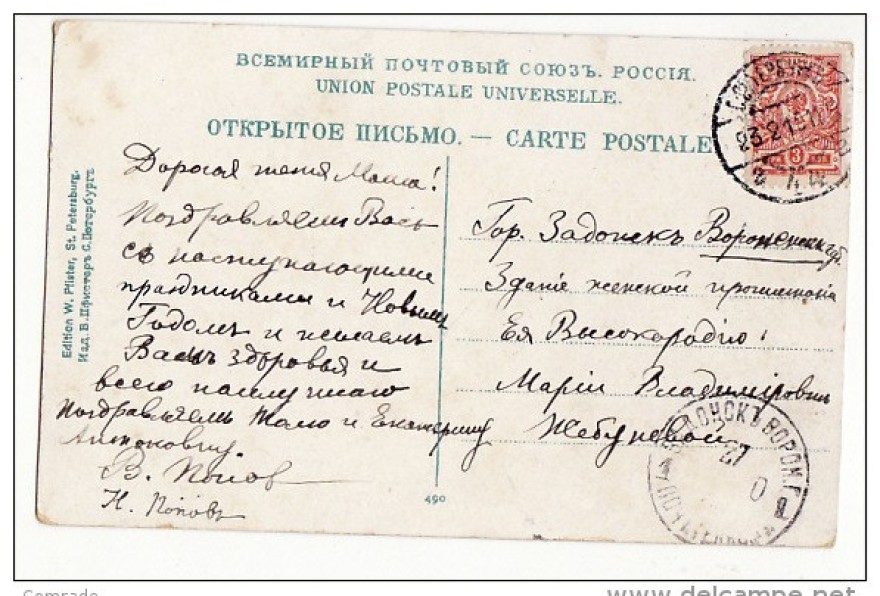 ВСЕМИРНЫЙ ПОЧТОВЫЙ СОЮЗЪ. РОССІЯ.
UNION POSTALE UNIVERSELLE.
ОТКРЫТОЕ ПИСЬМО. — CARTE POSTALE
Edition W. Pfister, St. Petersburg.
Изд. В. Пфистеръ С. Петербургъ
Дорогая тетя Маша!
Поздравляемъ Васъ
съ наступающими
праздниками и Новымъ
Годомъ и желаемъ
Вамъ здоровья и
всего наилучшаго
Поздравляемъ и Екатерину
Антоновну
В. Попов
Н. Поповъ
Гор. Задонскъ Воронежской губ.
Зданіе женской прогимназіи
Ея Высокородію
Маріи Владиміровнѣ
Жебуневой
490
С.ПЕТЕРБУРГЪ
3
ЗАДОНСКЪ ВОРОН. Г.
27
www.delcampe.net
Comrade